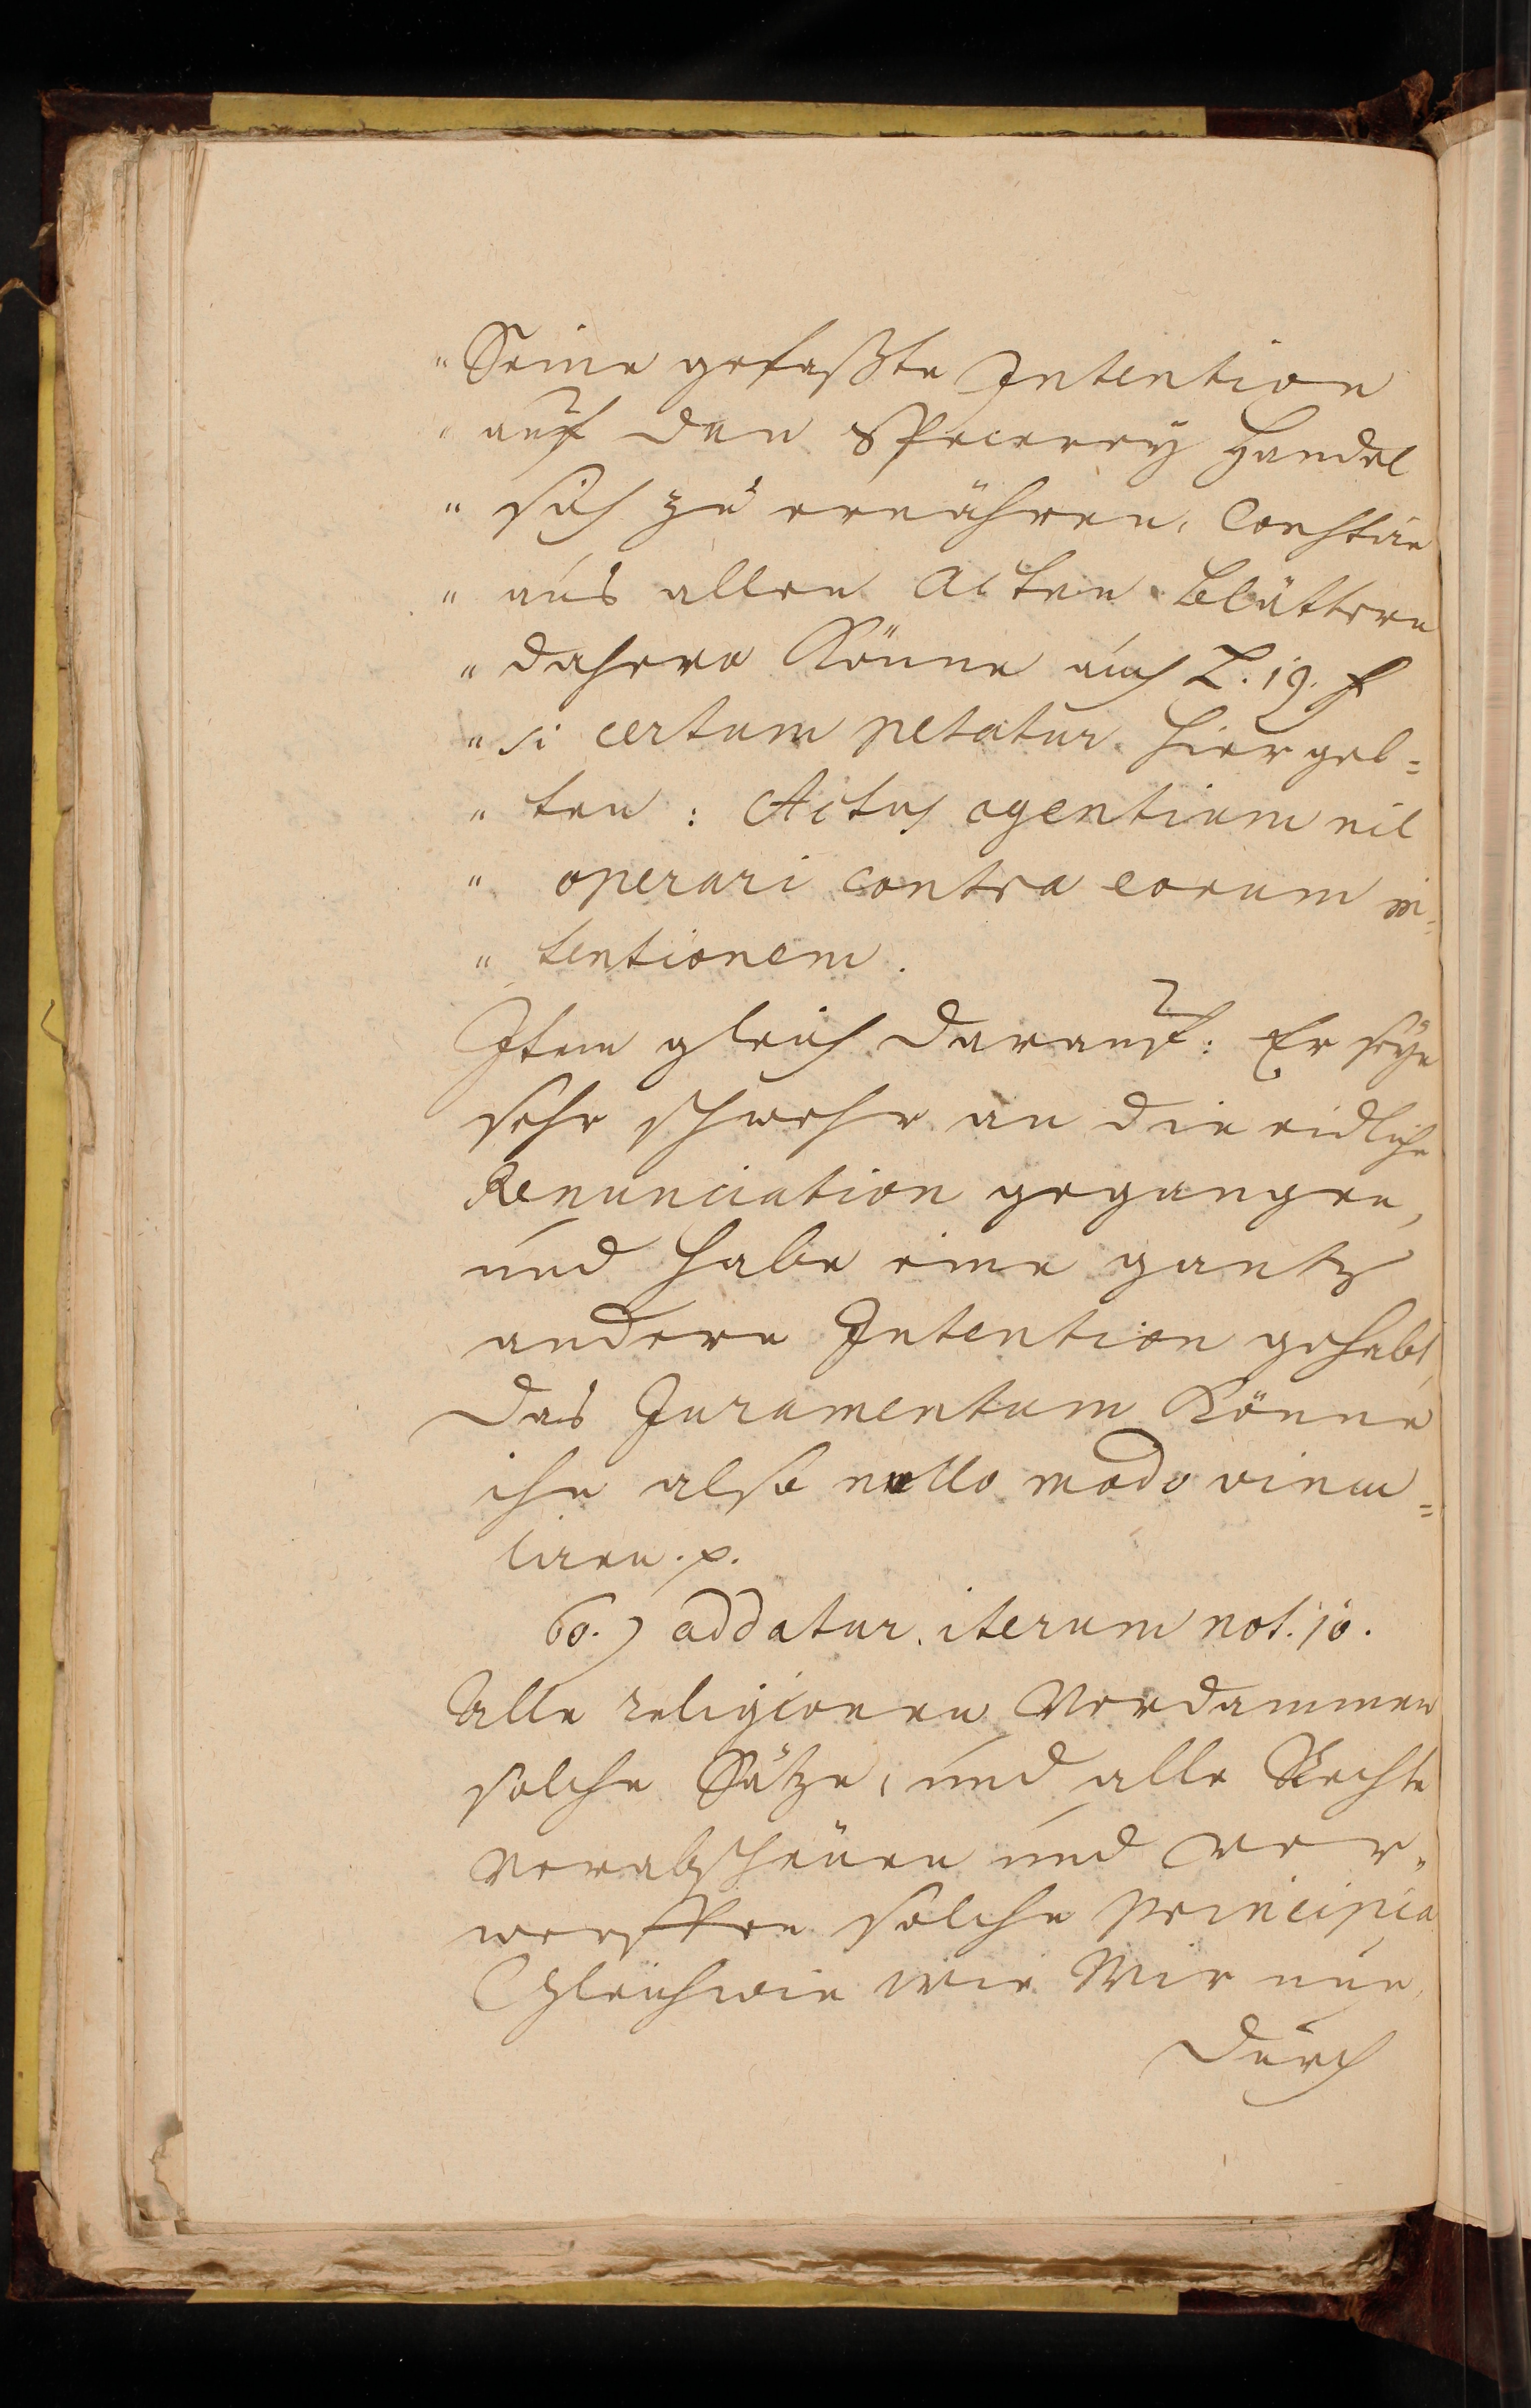 " Seine gefaßte Intention
" auf den Specerey Handel
" sich zu ernähren, Constire
" aus allen Acten Blättern
" dahero Könne auch L. 19. ff
" si certum petatur hier gel=
" ten: Actus agentium nil
" operari contra eorum in=
" tentionem.
Item gleich darauf: Er seye
sehr schwehr an die eidliche
Renunciation gegangen,
und habe eine gantz
andere Intention gehabt,
das Juramentum Könne
ihn also nullo modo vincu=
liren. p.
60.) addatur iterum not. 10.
Alle religionen Verdammen
solche Sätze, und alle Rechte
Verabscheuen und Ver=
werffen solche principia
Gleichwie wie Wir nun
durch